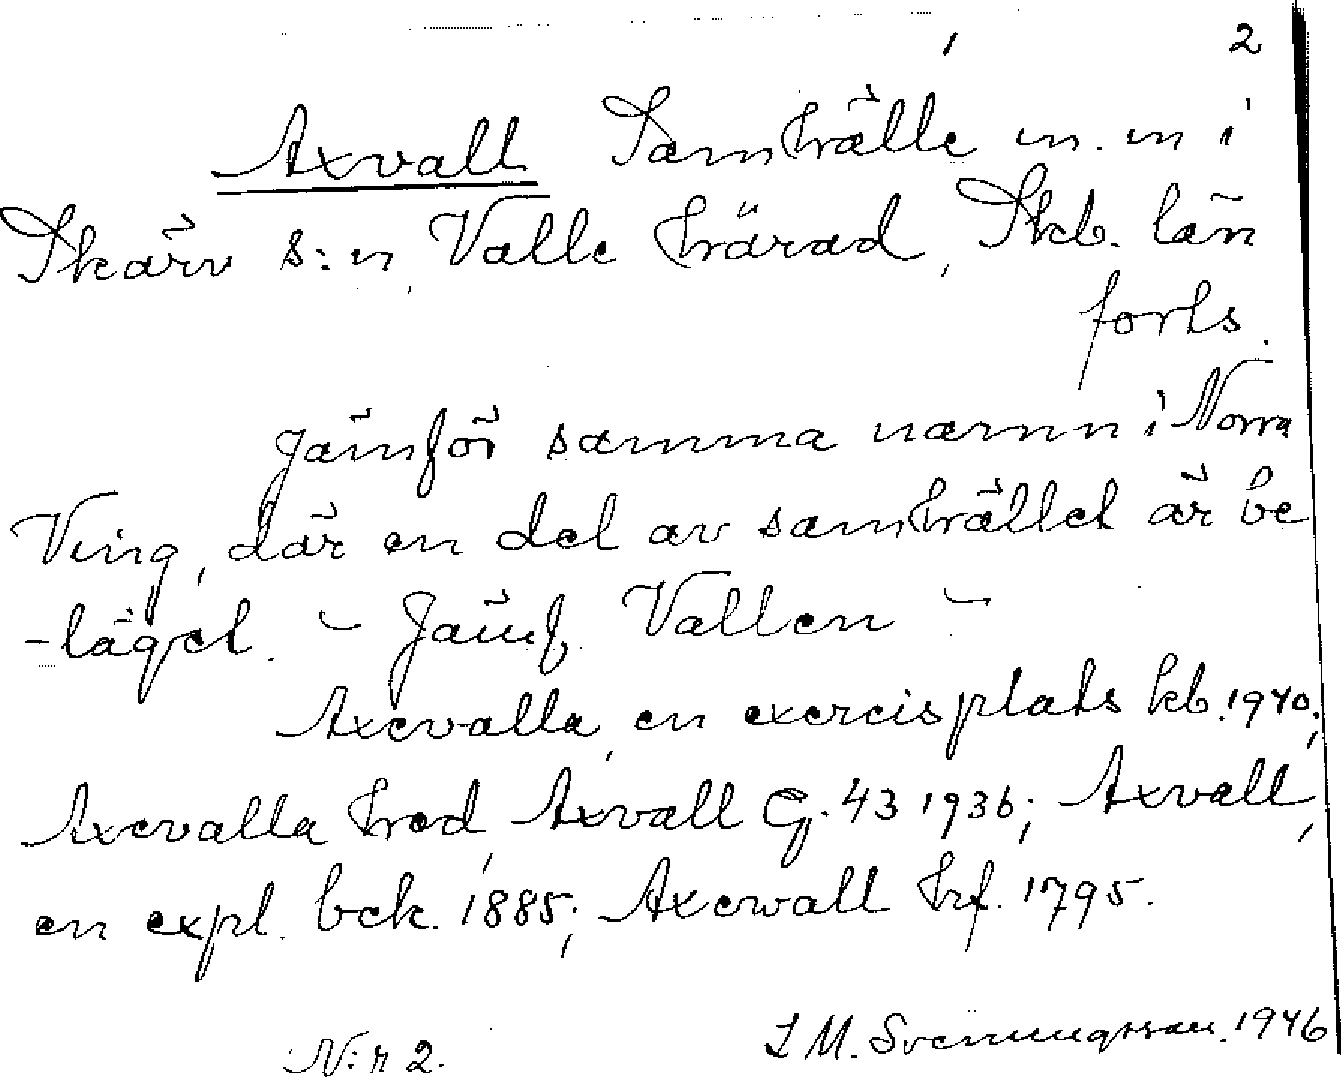 2
Axvall Samhälle m. m i
Skärv s:n, Valle härad, Skb. län
forts.
Jämför samma namn i Norra
Ving, där en del av samhället är be
-läget. - Jämf. Vallen -
Axevalla, en exercisplats kb. 1940;
Axevalla hed, Axvall G. 43 1936; Axvall,
en expl. bek. 1885; Axewall hrf. 1795.
N:r 2.
I M. Svenungsson. 1946